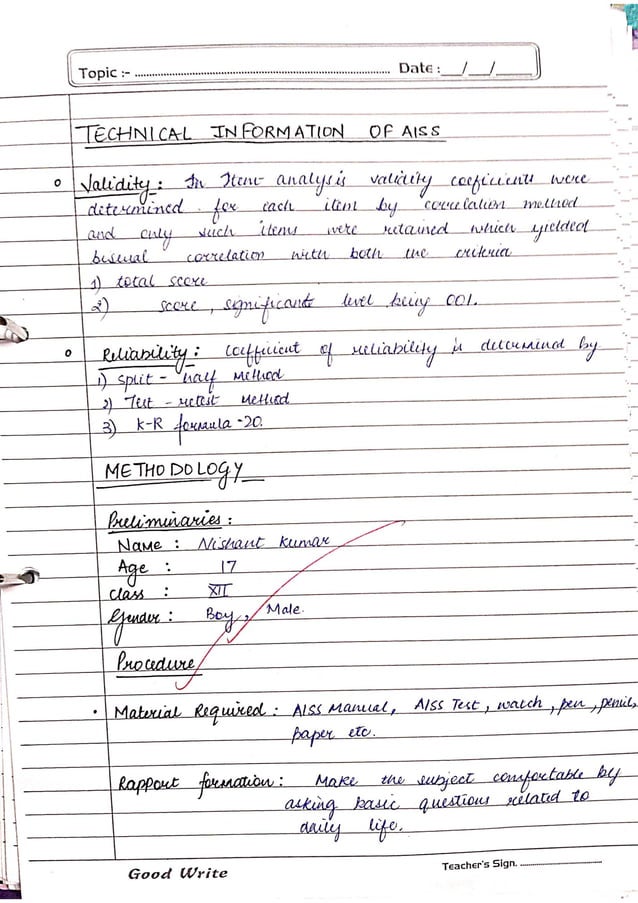 Topic :- ........ Date : __/__/____
TECHNICAL INFORMATION OF AISS
Validity : In Item analysis validity coefficients were
determined for each item by correlation method
and only such items were retained which yielded
biserial correlation with both the criteria
1) total score
2) score, significants level being 001.
Reliability : Coefficient of reliability is determined by
1) split - half method
2) Test - retest method
3) K-R formula -20.
METHODOLOGY
Preliminaries :
Name : Nishant Kumar
Age : 17
Class : XII
Gender : Boy, Male.
Procedure
• Material Required : AISS Manual, AISS Test, watch, pen, pencil,
paper etc.
Rapport formation : Make the subject comfortable by
asking basic questions related to
daily life.
Good Write
Teacher's Sign. ........